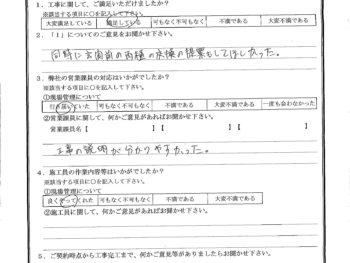 1．工事に関して、ご満足いただけましたか？
※該当する項目に○を記入して下さい。
大変満足している 満足している 可もなく不可もなく 不満である 大変不満である
2．「1」についてのご意見をお聞かせ下さい。
同時に玄関前の雨樋の交換の提案もしてほしかった。
3．弊社の営業課員の対応はいかがでしたか？
※該当する項目に○を記入して下さい。
①現場管理について
行き届いていた 可もなく不可もなく 不満である 大変不満である 一度も会わなかった
②営業課員に関して、何かご意見があればお聞かせ下さい。
営業課員名【 】【 】【 】
工事の説明が分かりやすかった。
4．施工員の作業内容等はいかがでしたか？
※該当する項目に○を記入して下さい。
①現場管理について
良くやってくれた 可もなく不可もなく 不満である 大変不満である
②施工員に関して、何かご意見があればお聞かせ下さい。
5．ご契約時点から工事完工まで、何かご意見等がありましたらお聞かせ下さい。